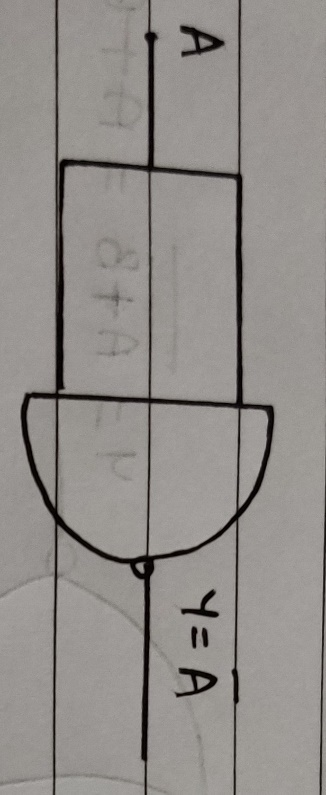 A
Y = A̅